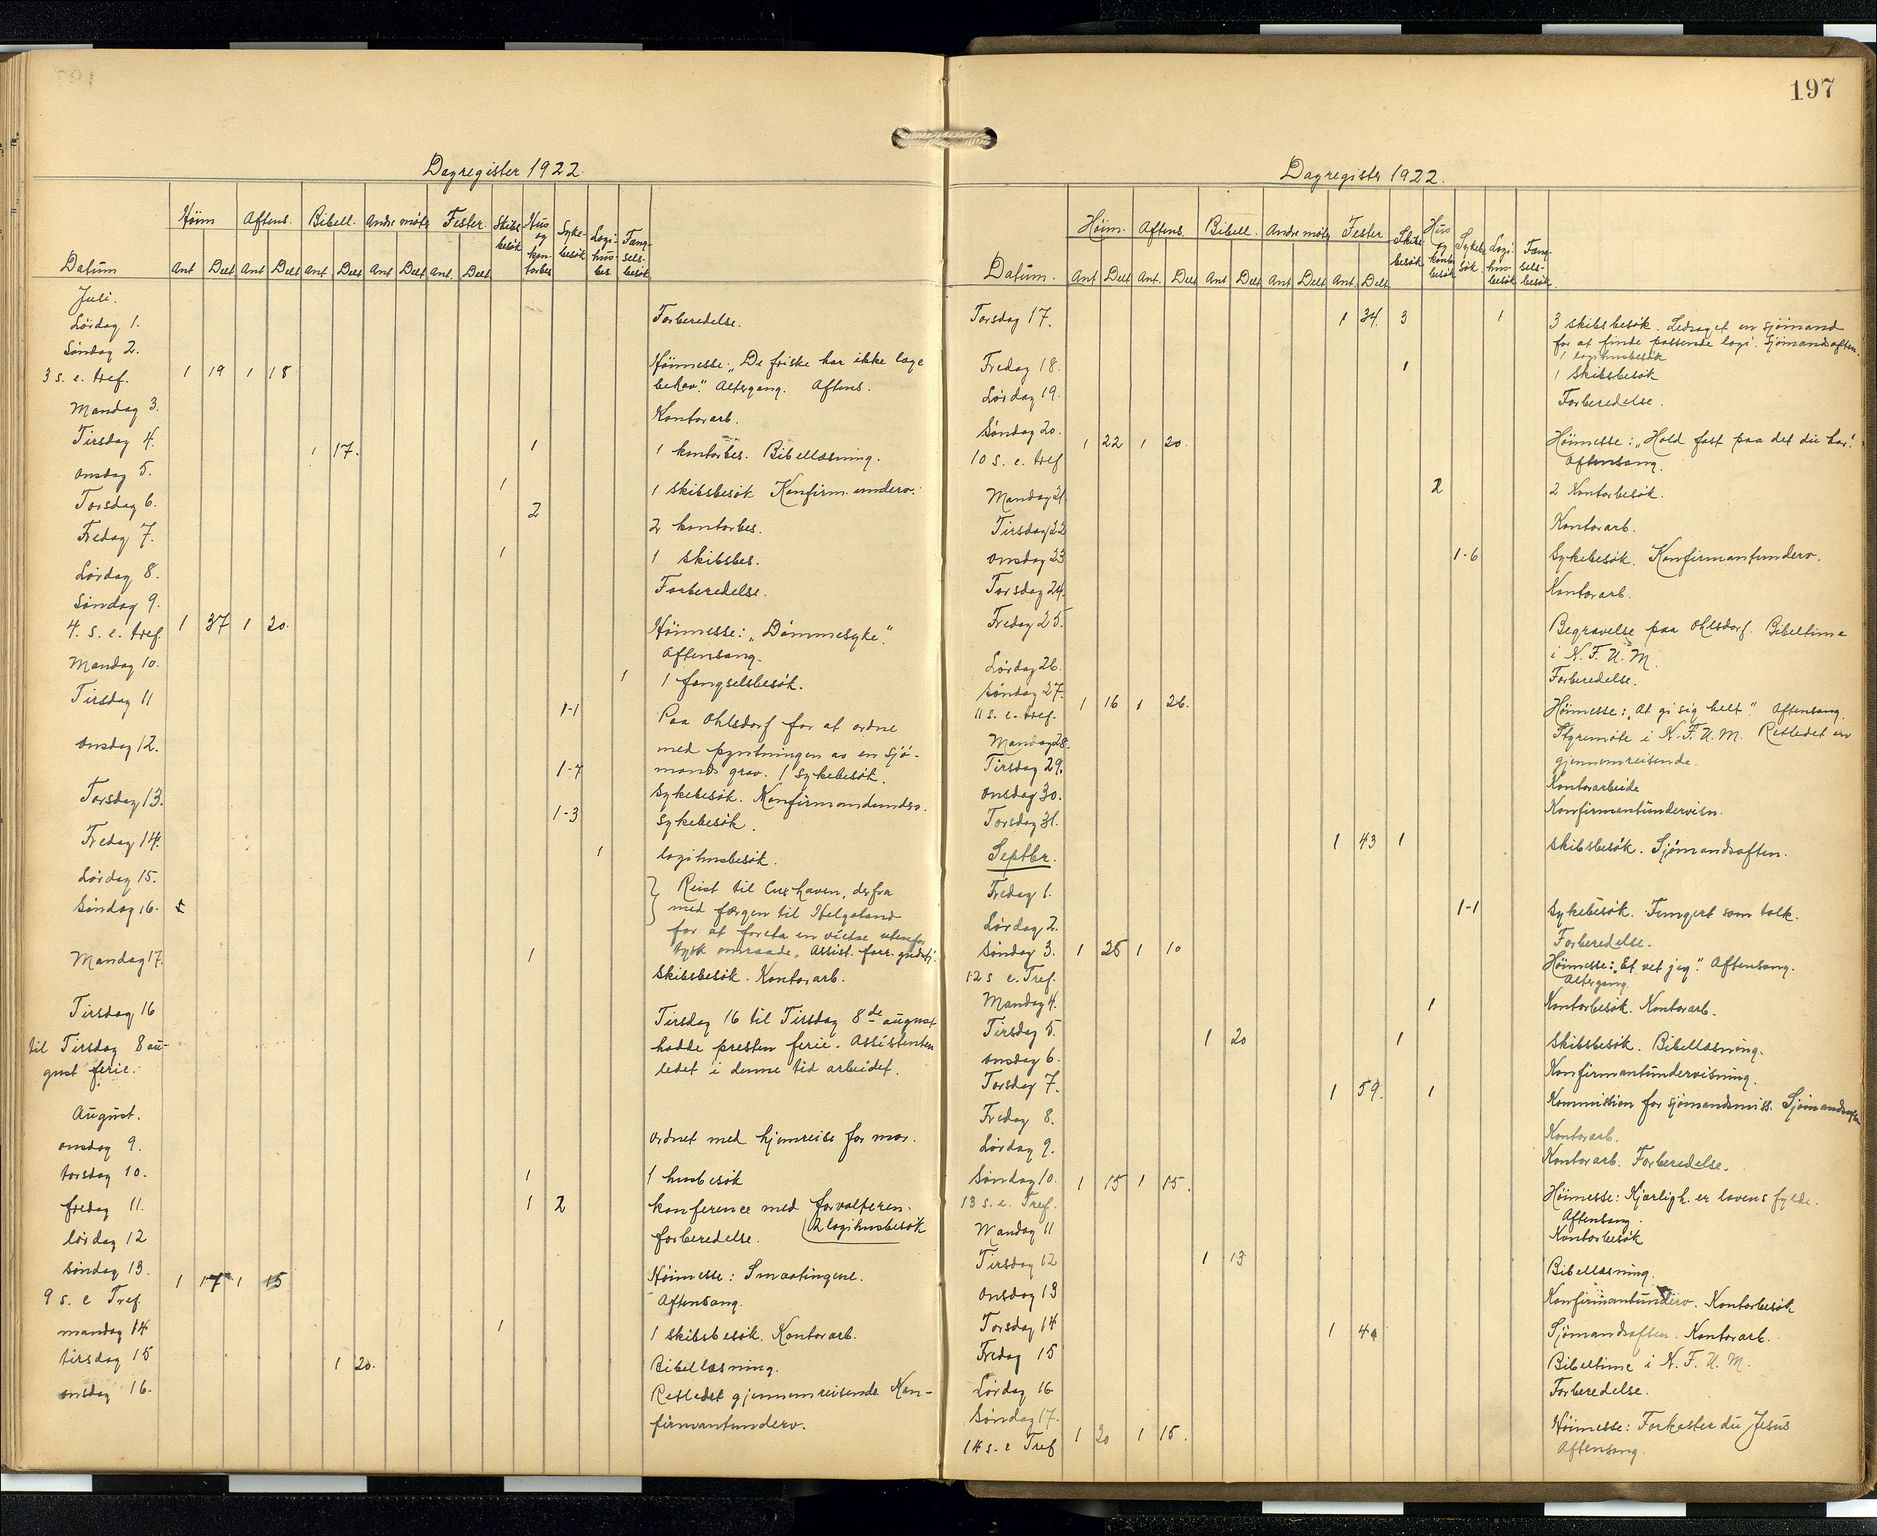 Dagregister 1922.
Høim Aftens. Bibell. Andre møte Fester. Skibsbesøk Hus og kontorbes Sykebesøk Logihusbes Fængselsbesøk
Datum Ant Delt Ant Delt Ant Delt Ant Delt Ant. Delt
Juli.
Lördag 1. Forberedelse.
Söndag 2.
3 s. e. tref. 1 19 1 18 Höimesse „De friske har ikke læge
behov." Altergang. Aftens.
Mandag 3. Kontorarb.
Tirsdag 4. 1 17. 1 1 kontorbes. Bibellæsning.
Onsdag 5. 1 1 skibsbesök Konfirm. underv.
Torsdag 6. 2 2 kontorbes.
Fredag 7. 1 1 skibsbes.
Lördag 8. Forberedelse.
Söndag 9.
4. s. e. tref. 1 37 1 20. Höimesse: „Dömmesyke."
Aftensang.
Mandag 10. 1 1 fængselsbesök.
Tirsdag 11 1-1 Paa Ohlsdorf for at ordne
med pyntningen av en sjö-
mands grav. 1 sykebesök.
Onsdag 12. 1-7 Sykebesök. Konfirmandunderv.
Torsdag 13. 1-3 Sykebesök.
Fredag 14. 1 logihusbesök.
Lördag 15. Reist til Cuxhaven, derfra
Söndag 16. med færgen til Helgoland
for at foreta en vielse utenfor
tysk omraade. Assist. forr. gudstj.
Mandag 17. 1 Skibsbesök. Kontorarb.
Tirsdag 16 Tirsdag 16 til Tirsdag 8de august
til Tirsdag 8 au- hadde presten ferie. Assistenten
gust ferie. ledet i denne tid arbeidet.
August.
Onsdag 9. Ordnet med hjemreise for mor.
torsdag 10. 1 1 husbesök
fredag 11. 1 2 konference med forvalteren.
2 logihusbesök
lördag 12 forberedelse.
söndag 13. 1 17 1 15 Höimesse: Smaatingene.
9 s. e Tref. Aftensang.
mandag 14 1 1 skibsbesök. Kontorarb.
tirsdag 15 1 20. Bibellæsning.
onsdag 16. Retledet gjennemreisende. Kon-
firmantunderv.
197
Dagregister 1922.
Höim. Aftens. Bibell. Andre möte Fester Skibsbesök Hus og kontorbesök Sykebesök Logihusbesök Fængselsbesök.
Datum. Ant Delt Ant. Delt Ant Delt Ant Delt Ant. Delt
Torsdag 17. 1 34. 3 1 3 skibsbesök. Ledsaget en sjömand
for at finde passende logi. Sjömandsaften.
1 logihusbesök
Fredag 18. 1 1 Skibsbesök
Lördag 19. Forberedelse.
Söndag 20. 1 22 1 20. Höimesse: „Hold fast paa det du har!
10 s. e. tref Aftensang.
Mandag 21. 2 2 Kontorbesök.
Tirsdag 22 Kontorarb.
Onsdag 23 1-6 Sykebesök. Konfirmantunderv.
Torsdag 24. Kontorarb.
Fredag 25. Begravelse paa Ohlsdorf. Bibeltime
i K. F. U. M.
Lördag 26. Forberedelse.
Söndag 27. 1 16 1 26.
11 s. e. tref. Höimesse: „At gi sig helt." Aftensang.
Mandag 28. Styremöte i K. F. U. M. Retledet en
gjennemreisende.
Tirsdag 29. Kontorarbeide
Onsdag 30. Konfirmantundervisn.
Torsdag 31. 1 43 1 Skibsbesök. Sjömandsaften.
Septbr.
Fredag 1. 1-1 Sykebesök. Fungert som tolk.
Lördag 2. Forberedelse.
Söndag 3. 1 25 1 10 Höimesse: „Et vet jeg". Aftensang.
12 s e. Tref. Altergang.
Mandag 4. 1 Kontorbesök. Kontorarb.
Tirsdag 5. 1 20 1 Skibsbesök. Bibellæsning.
Onsdag 6. Konfirmantundervisning.
Torsdag 7. 1 59. 1 Kommission for sjömandsmiss. Sjömandsaften
Fredag 8. Kontorarb.
Lördag 9. Kontorarb. Forberedelse.
Söndag 10. 1 15 1 15. Höimesse: Kjærligh. er lovens fylde.
13 s. e. Tref. Aftensang.
Mandag 11 Kontorbesök
Tirsdag 12 1 13 Bibellæsning.
Onsdag 13 Konfirmantunderv. Kontorbesök
Torsdag 14 1 40 Sjömandsaften. Kontorarb.
Fredag 15 Bibeltime i K. F. U. M.
Lördag 16 Forberedelse.
Söndag 17. 1 20 1 15. Höimesse: Forkaster du Jesus
14 s. e Tref Aftensang.